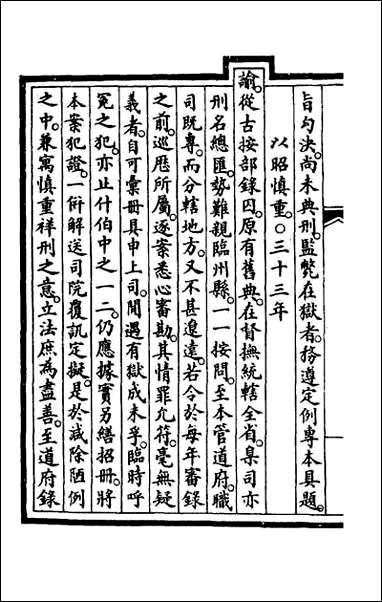 旨勾決。尚未典刑。監斃在獄者。務遵定例專本具題。
以昭慎重。○三十三年
諭。從古按部錄囚。原有舊典。在督撫統轄全省。臬司亦
刑名總匯。勢難親臨州縣。一一按問。至本管道府。職
司既專。而分轄地方。又不甚遼遠。若令於每年審錄
之前。巡歷所屬。逐案悉心審勘。其情罪允符。毫無疑
義者。自可彙冊具申上司。間遇有獄成未孚。臨時呼
冤之犯。亦止什伯中之一二。仍應據實另繕招冊。將
本案犯證。一併解送司院覆訊定擬。是於減除陋例
之中。兼寓慎重祥刑之意。立法庶為盡善。至道府錄